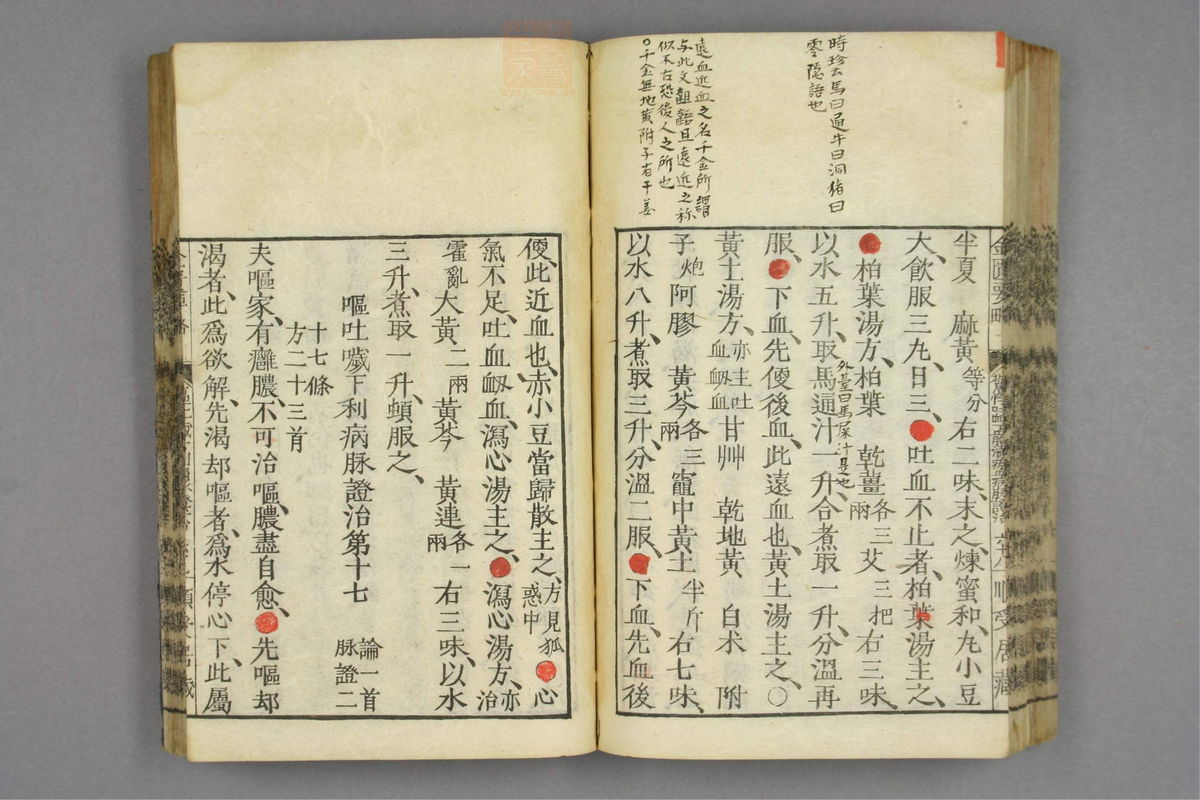 時珍云馬曰通牛曰洞猪曰
零隱語也
遠血近血之名千金所謂
与此文齟齬且遠近之称
似不古恐後人之所也
○千金無地黄附子有干姜
半夏　麻黃等分右二味末之煉蜜和丸小豆
大飲服三丸日三●吐血不止者柏葉湯主之
●柏葉湯方柏葉　乾薑各三兩艾三把右三味
以水五升取馬通汁一升合煮取一升分溫再
外臺曰馬屎汁是也
服●下血先便後血此遠血也黃土湯主之○
黃土湯方亦主吐血衂血甘艸　乾地黃　白术　附
子炮阿膠　黃芩各三兩竈中黃土半斤右七味
以水八升煮取三升分溫二服●下血先血後
便此近血也赤小豆當歸散主之方見狐惑中●心
氣不足吐血衂血瀉心湯主之●瀉心湯方亦治
霍亂大黃二兩黃芩　黃連各一兩右三味以水
三升煮取一升頓服之
嘔吐噦下利病脉證治第十七　論一首脉證二
十七條
方二十三首
夫嘔家有癰膿不可治嘔膿盡自愈●先嘔却
渴者此爲欲解先渴却嘔者爲水停心下此屬
順受居藏